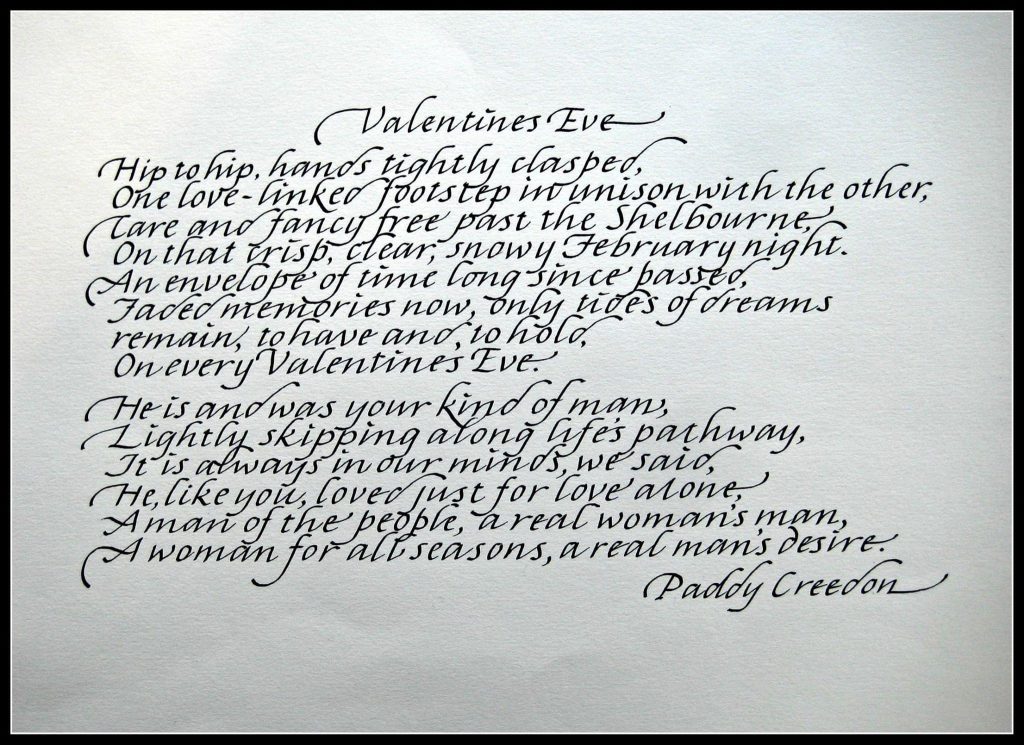 Valentines Eve
Hip to hip, hands tightly clasped,
One love-linked footstep in unison with the other,
Care and fancy free past the Shelbourne,
On that crisp, clear, snowy February night.
An envelope of time long since passed,
Faded memories now, only tides of dreams
remain, to have and, to hold,
On every Valentines Eve.
He is and was your kind of man,
Lightly skipping along life's pathway,
It is always in our minds, we said,
He, like you, loved just for love alone,
A man of the people, a real woman's man,
A woman for all seasons, a real man's desire.
Paddy Creedon